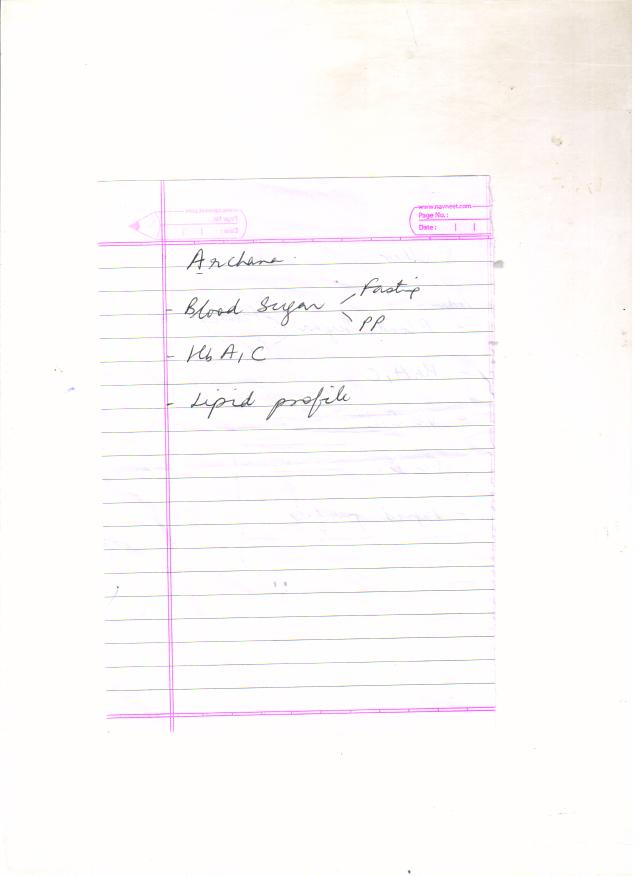 www.navneet.com
Page No.:
Date:
Archana.
- Blood Sugar Fasting
PP
- HbA1C
- Lipid profile